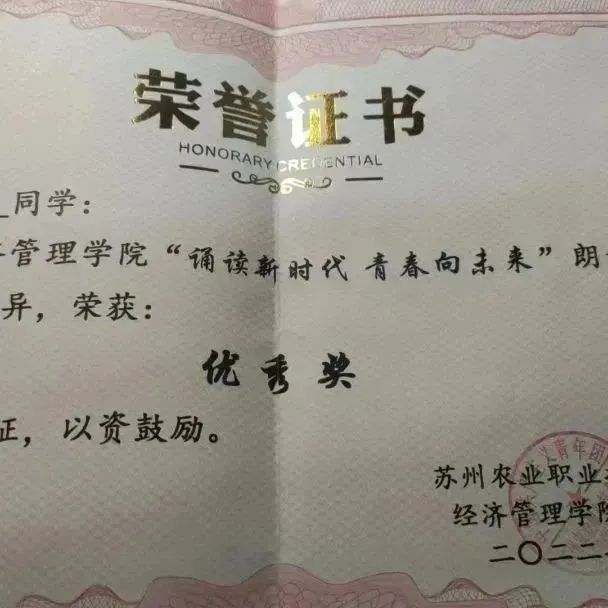 荣誉证书
HONORARY CREDENTIAL
同学：
管理学院“诵读新时代 青春向未来”朗
异，荣获：
优秀奖
证，以资鼓励。
青年团
苏州农业职业
经济管理学院
二〇二二